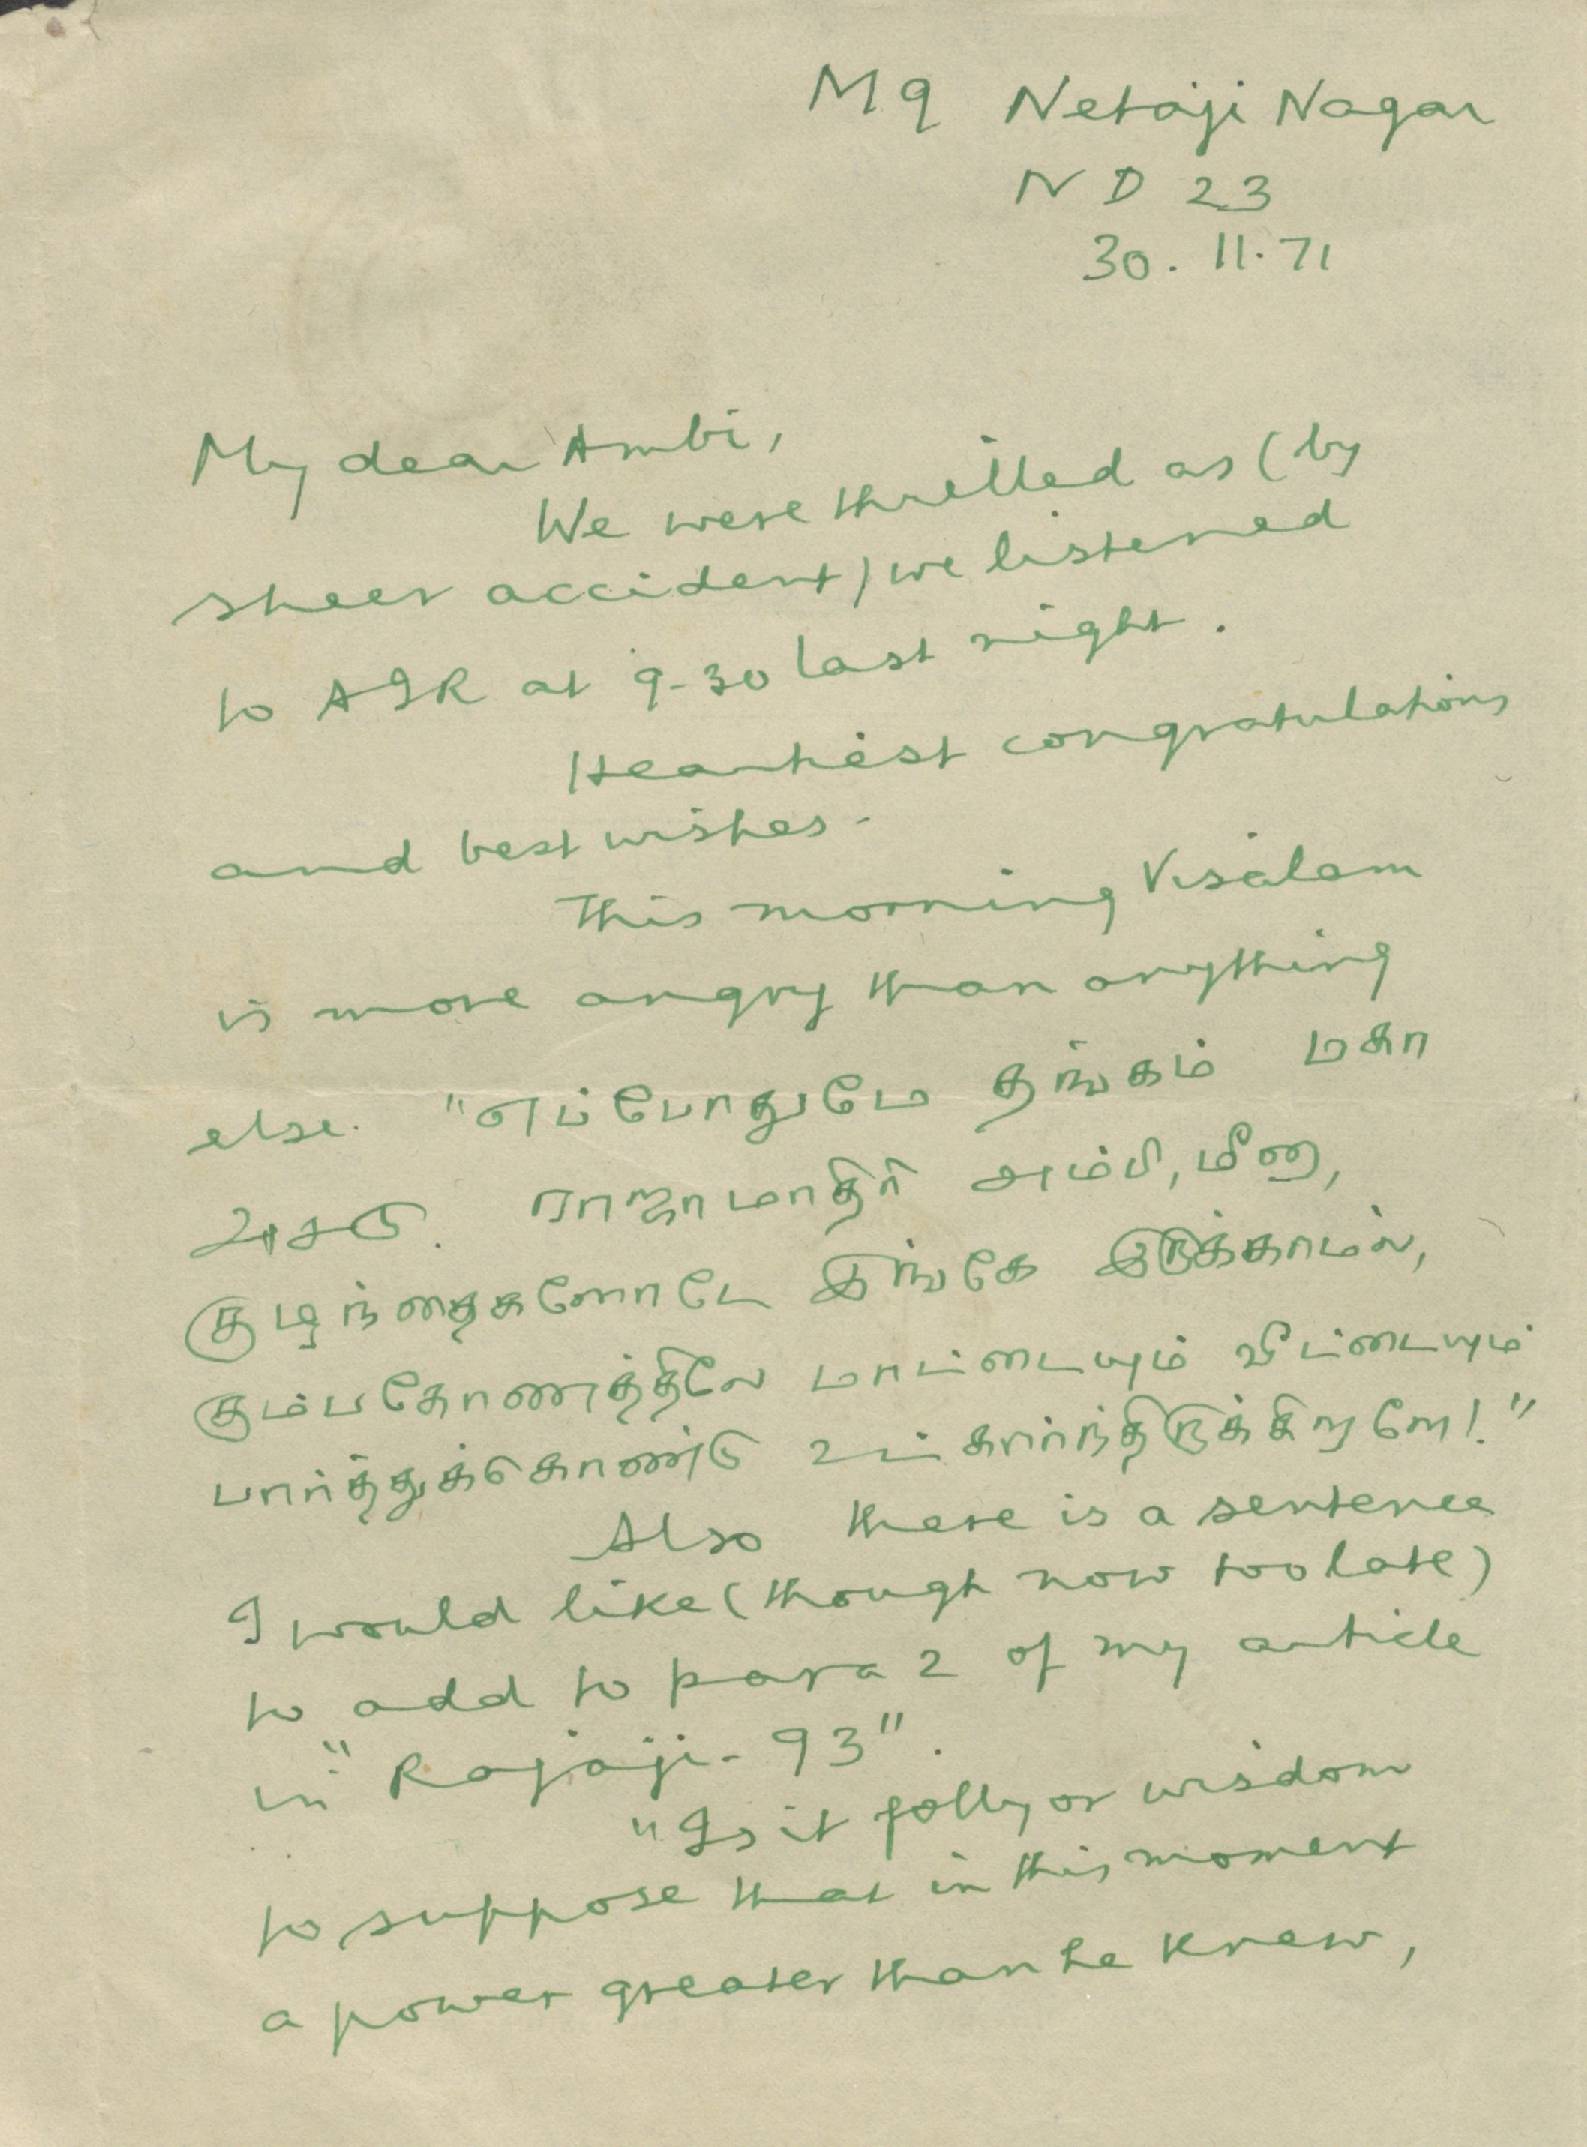 M9 Netaji Nagar
N D 23
30. 11. 71
My dear Ambi,
We were thrilled as (by
sheer accident) we listened
to AIR at 9-30 last night.
Heartiest congratulations
and best wishes.
This morning Visalam
is more angry than anything
else. "எப்போதுமே தங்கம் மகா
அசடு. ராஜாமாதிரி அம்பி, மீனு,
குழந்தைகளோடே இங்கே இருக்காமல்,
கும்பகோணத்திலே மாட்டையும் வீட்டையும்
பார்த்துக்கொண்டு உட்கார்ந்திருக்கிறாளே!"
Also there is a sentence
I would like (though now too late)
to add to para 2 of my article
in "Rajaji-93".
"Is it folly or wisdom
to suppose that in this moment
a power greater than he knew,